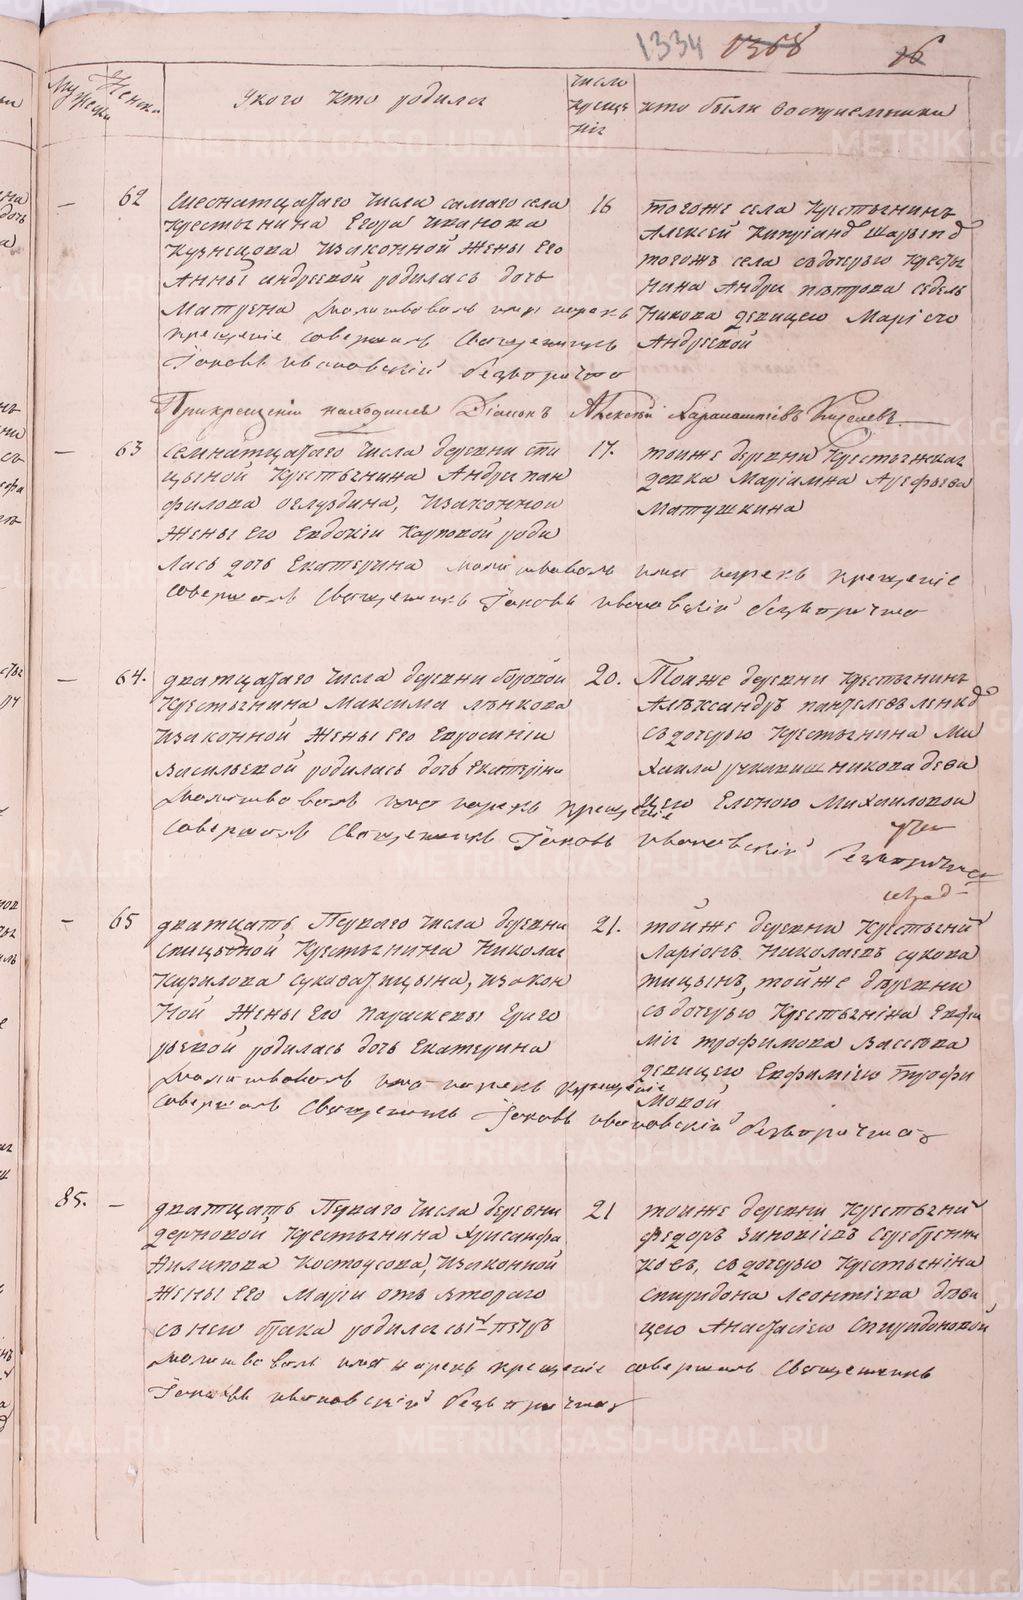 1334 1368 16
Мужеска Женска
У кого кто родился
число крещенія
кто были восприемники
— 62
шеснатцатаго числа самаго села
крестьянина Егора Иванова
Кузнецова изаконной жены его
Анны андреевой родилась дочь
Матрена молитвовалъ имя нарекъ
крещеніе совершалъ Священникъ
Іаковъ ивановскій безъпричта
16
тогоже села крестьянинъ
Алексей
тогожъ села съдочерью кресть
нина Андри петрова седель
никова девицею Маріею
Андреевой
При крещеніи находился Діаконъ Алексей Киселевъ
— 63
семнатцатаго числа деревни спи
цыной крестьянина Андри пан
филова оглуздина, изаконной
жены его Евдокіи Карповой роди
лась дочь Екатерина молитвовалъ имя нарекъ крещеніе
совершалъ Священникъ Іаковъ ивановскій безъпричта
17.
тойже деревни крестьянская
девка Маріамна Арефьева
Матушкина
— 64.
дватцатаго числа деревни боровой
крестьянина Максима лѣнкова
изаконной жены его Евросиніи
Васильевой родилась дочь Екатеріна
молитвовалъ имя нарекъ крещеніе
совершалъ Священникъ Іаковъ ивановскій безъпричта
20.
Тойже деревни крестьянинъ
Алѣксандръ пантелеевъ
съдочерью крестьянина Ми
хаила девицею
Еленою Михаиловой
— 65
дватцать Перваго числа деревни
спицыной крестьянина Николая
Кирилова суковатицына, изакон
ной жены его параскевы Григо
рьевой родилась дочь Екатерина
молитвовалъ имя нарекъ крещеніе
совершалъ Священникъ Іаковъ ивановскій безъпричта
21.
тойже деревни крестьянинъ
Ларіонъ Николаевъ сукова
тицынъ, тойже деревни
съдочерью крестьяніна Евфи
мія трофимова Вассева
девицею Евфиміею трофи
мовой
85. —
дватцать Перваго числа деревни
дерновой крестьянина Хрисанфа
Филипова Костоусова, изаконной
жены его Маріи отъ втораго
съней брака родился сынъ пѣтръ
молитвовалъ имя нарекъ крещеніе совершалъ Священникъ
Іаковъ ивановскій безъпричта
21
тойже деревни крестьянинъ
Федоръ Зиновіевъ Серебренни
ковъ, съдочерью крестьяніна
спиридона Леонтіева дѣви
цею Анастасіею спиридоновой